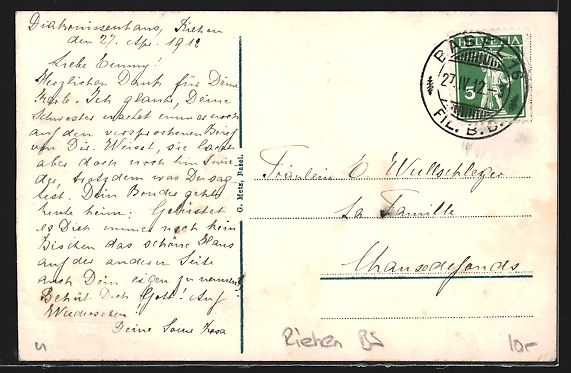 Diakonissenhaus, Riehen
den 27. Apr. 1912
Liebe Emmy!
Herzlichen Dank für Deine
Karte. Ich glaube, Deine
Schwester wartet immer noch
auf den versprochenen Brief
von Dir. Weisst, sie
aber doch noch hin
trotzdem was Du sag-
test. Dein Bruder geht
heute heim. Gelüstet
es Dich immer noch kein
Bischen das schöne Haus
auf der anderen Seite
auch Dein eigen zu nennen?
Behüt Dich Gott! Auf
Wiedersehen!
Deine Rosa
G. Metz, Basel.
HELVETIA
5
BASEL 18
27.IV.12.
FIL. B.B.
Fräulein E. Wullschleger
La Famille
Chauxdefonds
Riehen BS
10.-